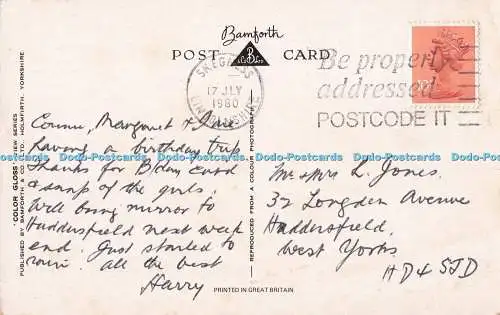 Bamforth
POST CARD
B
SKEGNESS
17 JLY
1980
LINCOLNSHIRE
Be properly
addressed
POSTCODE IT
"COLOR GLOSS" VIEW SERIES
PUBLISHED BY BAMFORTH & CO. LTD., HOLMFIRTH, YORKSHIRE
REPRODUCED FROM A COLOUR PHOTOGRAPH
Connie, Margaret &
having a birthday trip
Thanks for B/day card
& snap of the girls.
Will bring mirror to
Huddersfield next week
end. Just started to
rain. All the best
Harry
Mr & Mrs L. Jones.
32 Longden Avenue
Huddersfield,
West Yorks
HD4 5JD
PRINTED IN GREAT BRITAIN
www.Postcards-World.com